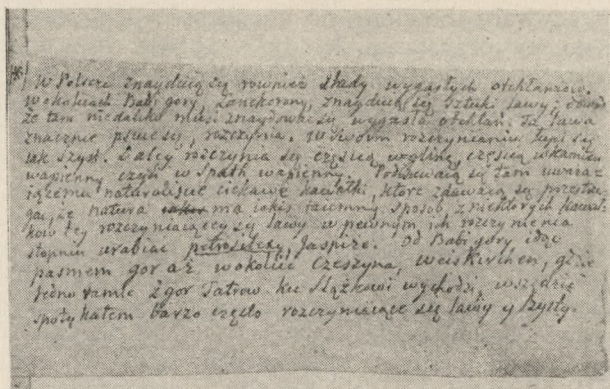 W Polszcze znayduią się rownież ślady wygasłych otchłanzow.
w okolicach Babi gory, Lanckorony, znayduią się sztuki lawy;
że tam niedaleko musi znaydować się wygasła otchłań. Ta lawa
znacznie psuie się, rozczynia. w swoim rozczynianiu łupi się
iak szyst. Daley rozczynia się częścią w glinę, częścią w kamień
wapienny czyli w Spath wapienny. Pokazuią się tam uważa
iącemu naturaliście ciekawe kawałki, ktore zdawaią się przestrze
gać, że natura ma iakiś taiemny sposób z niektorych kawał
kow tey rozczyniaiącey się lawy w pewnym ich rozczynienia
stopniu urabiać petrosilexy, Jaspisze. Od Babi gory, idąc
pasmem gor aż w okolice Czeszyna, Weiskirchen, gdzie
iedno ramie z gor Tatrow ku Sląskowi wychodzi, wszędzie
spotykałem barzo często rozczyniaiące się lawy y szysty.